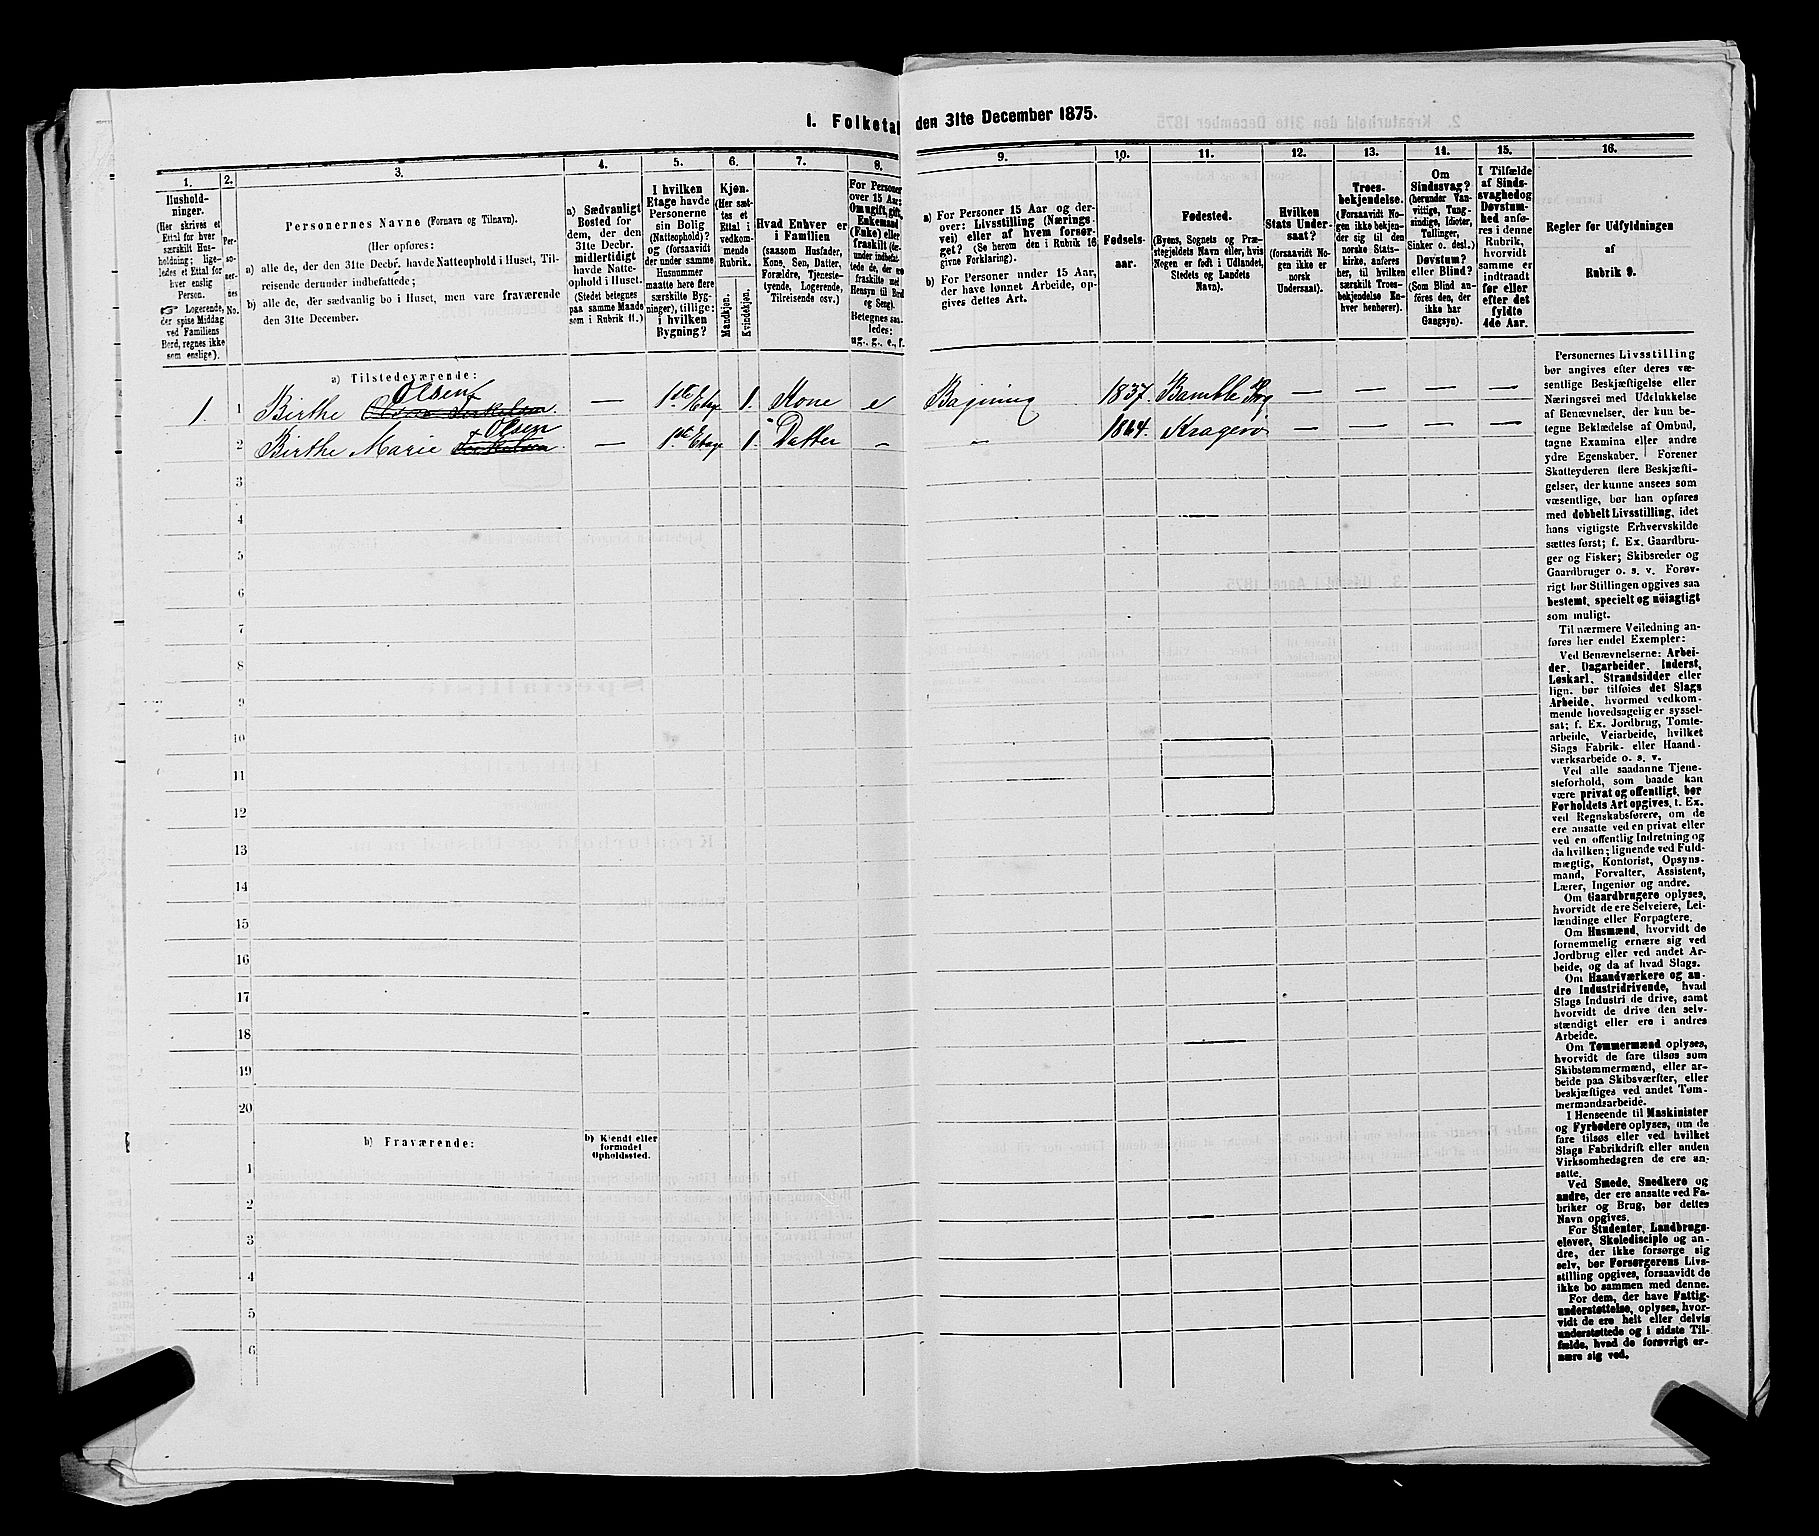 1. Folketal den 31te December 1875.
1.
2.
3.
4.
5.
6.
7.
8.
9.
10.
11.
12.
13.
14.
15.
16.
Hushold-
ninger.
(Her skrives et
Ettal for hver
særskilt Hus-
holdning; lige-
ledes et Ettal for
hver enslig
Person.
☞ Logerende,
der spise Middag
ved Familiens
Bord, regnes ikke
som enslige).
Per-
so-
ner-
nes
No.
Personernes Navne (Fornavn og Tilnavn).
(Her opføres:
a) alle de, der den 31te Decbr. havde Natteophold i Huset, Til-
reisende derunder indbefattede;
b) alle de, der sædvanlig bo i Huset, men vare fraværende
den 31te December.
a) Sædvanligt
Bosted for
dem, der den
31te Decbr.
midlertidigt
havde Natte-
ophold i Huset.
(Stedet betegnes
paa samme Maade
som i Rubrik 11.)
I hvilken
Etage havde
Personerne
sin Bolig
(Natteophold)?
og (forsaavidt
der under samme
Husnummer
maatte høre flere
særskilte Byg-
ninger), tillige:
i hvilken
Bygning?
Kjøn.
(Her sæt-
tes et
Ettal i
vedkom-
mende
Rubrik.
Mandkjøn.
Kvindekjøn.
Hvad Enhver er
i Familien
(saasom Husfader,
Kone, Søn, Datter,
Forældre, Tjeneste-
tyende, Logerende,
Tilreisende osv.)
For Personer
over 15 Aar:
Om ugift, gift,
Enkemand
(Enke) eller
fraskilt (der-
under indbefat-
tede de, der ere
fraskilte med
Hensyn til Bord
og Seng).
Betegnes saa-
ledes:
ug., g., e., f.
a) For Personer 15 Aar og der-
over: Livsstilling (Nærings-
vei) eller af hvem forsør-
get? (Se herom den i Rubrik 16
givne Forklaring).
b) For Personer under 15 Aar,
der have lønnet Arbeide, op-
gives dettes Art.
Fødsels-
aar.
Fødested.
(Byens, Sognets og Præ-
stegjeldets Navn eller, hvis
Nogen er født i Udlandet,
Stedets og Landets
Navn).
Hvilken
Stats Under-
saat?
(forsaavidt No-
gen ikke er
norsk
Undersaat).
Troes-
bekjendelse.
(Forsaavidt No-
gen ikke bekjen-
der sig til den
norske Stats-
kirke, anføres
her, til hvilken
særskilt Troes-
bekjendelse En-
hver henhører).
Om
Sindssvag?
(herunder Van-
vittige, Tung-
sindige, Idioter,
Tullinger,
Sinker o. desl.)
Døvstum?
eller Blind?
(Som Blind an-
føres den, der
ikke har
Gangsyn).
I Tilfælde
af Sinds-
svaghed og
Døvstum-
hed anfø-
res i denne
Rubrik,
hvorvidt
samme er
indtraadt
før eller
efter det
fyldte
4de Aar.
Regler for Udfyldningen
af
Rubrik 9.
a) Tilstedeværende:
Olsen
1. 1 Birthe — 1ste Etage 1. Kone e Bagning 1837. Bamble Prg — — — —
Olsen
2 Birthe Marie — 1ste Etage 1. Datter – „ 1864. Kragerø — — — —
3
4
5
6
7
8
9
10
11
12
13
14
15
16
17
18
19
20
b) Fraværende:
b) Kjendt eller
formodet
Opholdssted.
1
2
3
4
5
6
Personernes Livsstilling
bør angives efter deres væ-
sentlige Beskjæftigelse eller
Næringsvei med Udelukkelse
af Benævnelser, der kun be-
tegne Beklædelse af Ombud,
tagne Examina eller andre
ydre Egenskaber. Forener
Skatteyderen flere Beskjæfti-
gelser, der kunne ansees som
væsentlige, bør han opføres
med dobbelt Livsstilling, idet
hans vigtigste Erhvervskilde
sættes først; f. Ex. Gaardbru-
ger og Fisker; Skibsreder og
Gaardbruger o. s. v. Forøv-
rigt bør Stillingen opgives saa
bestemt, specielt og nøiagtigt
som muligt.
Til nærmere Veiledning an-
føres her endel Exempler:
Ved Benævnelserne: Arbei-
der, Dagarbeider, Inderst,
Løskarl, Strandsidder eller
lign. bør tilføies det Slags
Arbeide, hvormed vedkom-
mende hovedsagelig er syssel-
sat; f. Ex. Jordbrug, Tomte-
arbeide, Veiarbeide, hvilket
Slags Fabrik- eller Haand-
værksarbeide o. s. v.
Ved alle saadanne Tjene-
steforhold, som baade kan
være privat og offentligt, bør
Forholdets Art opgives, f. Ex.
ved Regnskabsførere, om de
ere ansatte ved en privat eller
ved en offentlig Indretning og
da hvilken; lignende ved Fuld-
mægtig, Kontorist, Opsyns-
mand, Forvalter, Assistent,
Lærer, Ingeniør og andre.
Om Gaardbrugere oplyses,
hvorvidt de ere Selveiere, Lei-
lændinge eller Forpagtere.
Om Husmænd, hvorvidt de
fornemmelig ernære sig ved
Jordbrug eller ved andet Ar-
beide, og da af hvad Slags.
Om Haandværkere og an-
dre Industridrivende, hvad
Slags Industri de drive, samt
hvorvidt de drive den selv-
stændigt eller ere i andres
Arbeide.
Om Tømmermænd oplyses,
hvorvidt de fare tilsøs som
Skibstømmermænd, eller ar-
beide paa Skibsværfter, eller
beskjæftiges ved andet Tøm-
mermandsarbeide.
I Henseende til Maskinister
og Fyrbødere oplyses, om de
fare tilsøs eller ved hvilket
Slags Fabrikdrift eller anden
Virksomhedsgren de ere an-
satte.
Ved Smede, Snedkere og
andre, der ere ansatte ved Fa-
briker og Brug, bør dettes
Navn opgives.
For Studenter, Landbrugs-
elever, Skoledisciple og an-
dre, der ikke forsørge sig
selv, bør Forsørgerens Livs-
stilling opgives, forsaavidt de
ikke bo sammen med denne.
For dem, der have Fattig-
understøttelse, oplyses, hvor-
vidt de ere helt eller delvis
understøttede og i sidste Til-
fælde, hvad de forøvrigt er-
nære sig ved.